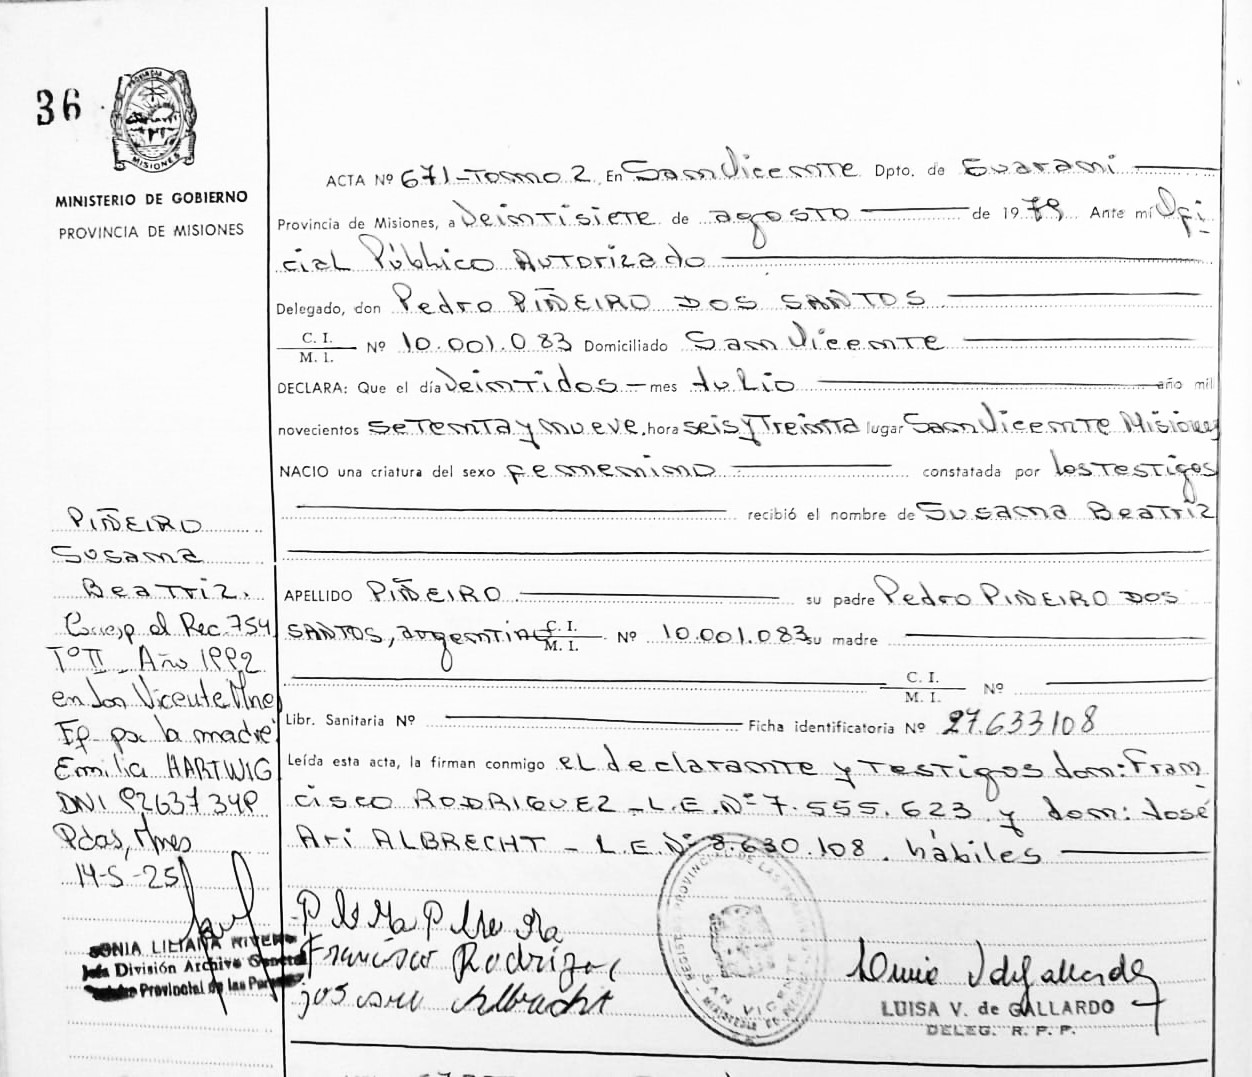 36
PROVINCIA DE
MISIONES
MINISTERIO DE GOBIERNO
PROVINCIA DE MISIONES
ACTA Nº 671-Tomo 2. En San Vicente Dpto. de Guaraní
Provincia de Misiones, a Veintisiete de agosto de 1979 Ante mí Ofi
cial Público Autorizado
Delegado, don Pedro PIÑEIRO DOS SANTOS
C. I.
M. I. Nº 10.001.083 Domiciliado San Vicente
DECLARA: Que el día Veintidos mes Julio año mil
novecientos setenta y nueve, hora seis y Treinta lugar San Vicente Misiones
NACIO una criatura del sexo femenino constatada por los Testigos
recibió el nombre de Susana Beatriz
APELLIDO PIÑEIRO su padre Pedro PIÑEIRO DOS
SANTOS, argentino C. I. M. I. Nº 10.001.083 su madre
C. I.
M. I. Nº
Libr. Sanitaria Nº Ficha identificatoria Nº 27.633108
Leída esta acta, la firman conmigo el declarante y testigos don: Fran
cisco RODRIGUEZ - L.E.Nº 7.555.623 y don: José
Ari ALBRECHT - L.E.Nº 8.630.108. hábiles
PIÑEIRO
Susana
Beatriz.
al Rec. 754
Tº II - Año 1992
en San Vicente Mnes
por la madre
Emilia HARTWIG
DNI 92637349
Pdas, Mnes
14-5-25
SONIA LILIANA RIVERO
Jefa División Archivo General
Provincial de las Personas
Francisco Rodriguez
Albrecht
REGISTRO PROVINCIAL DE LAS PERSONAS
SAN VICENTE
LUISA V. de GALLARDO
DELEG. R. P. P.